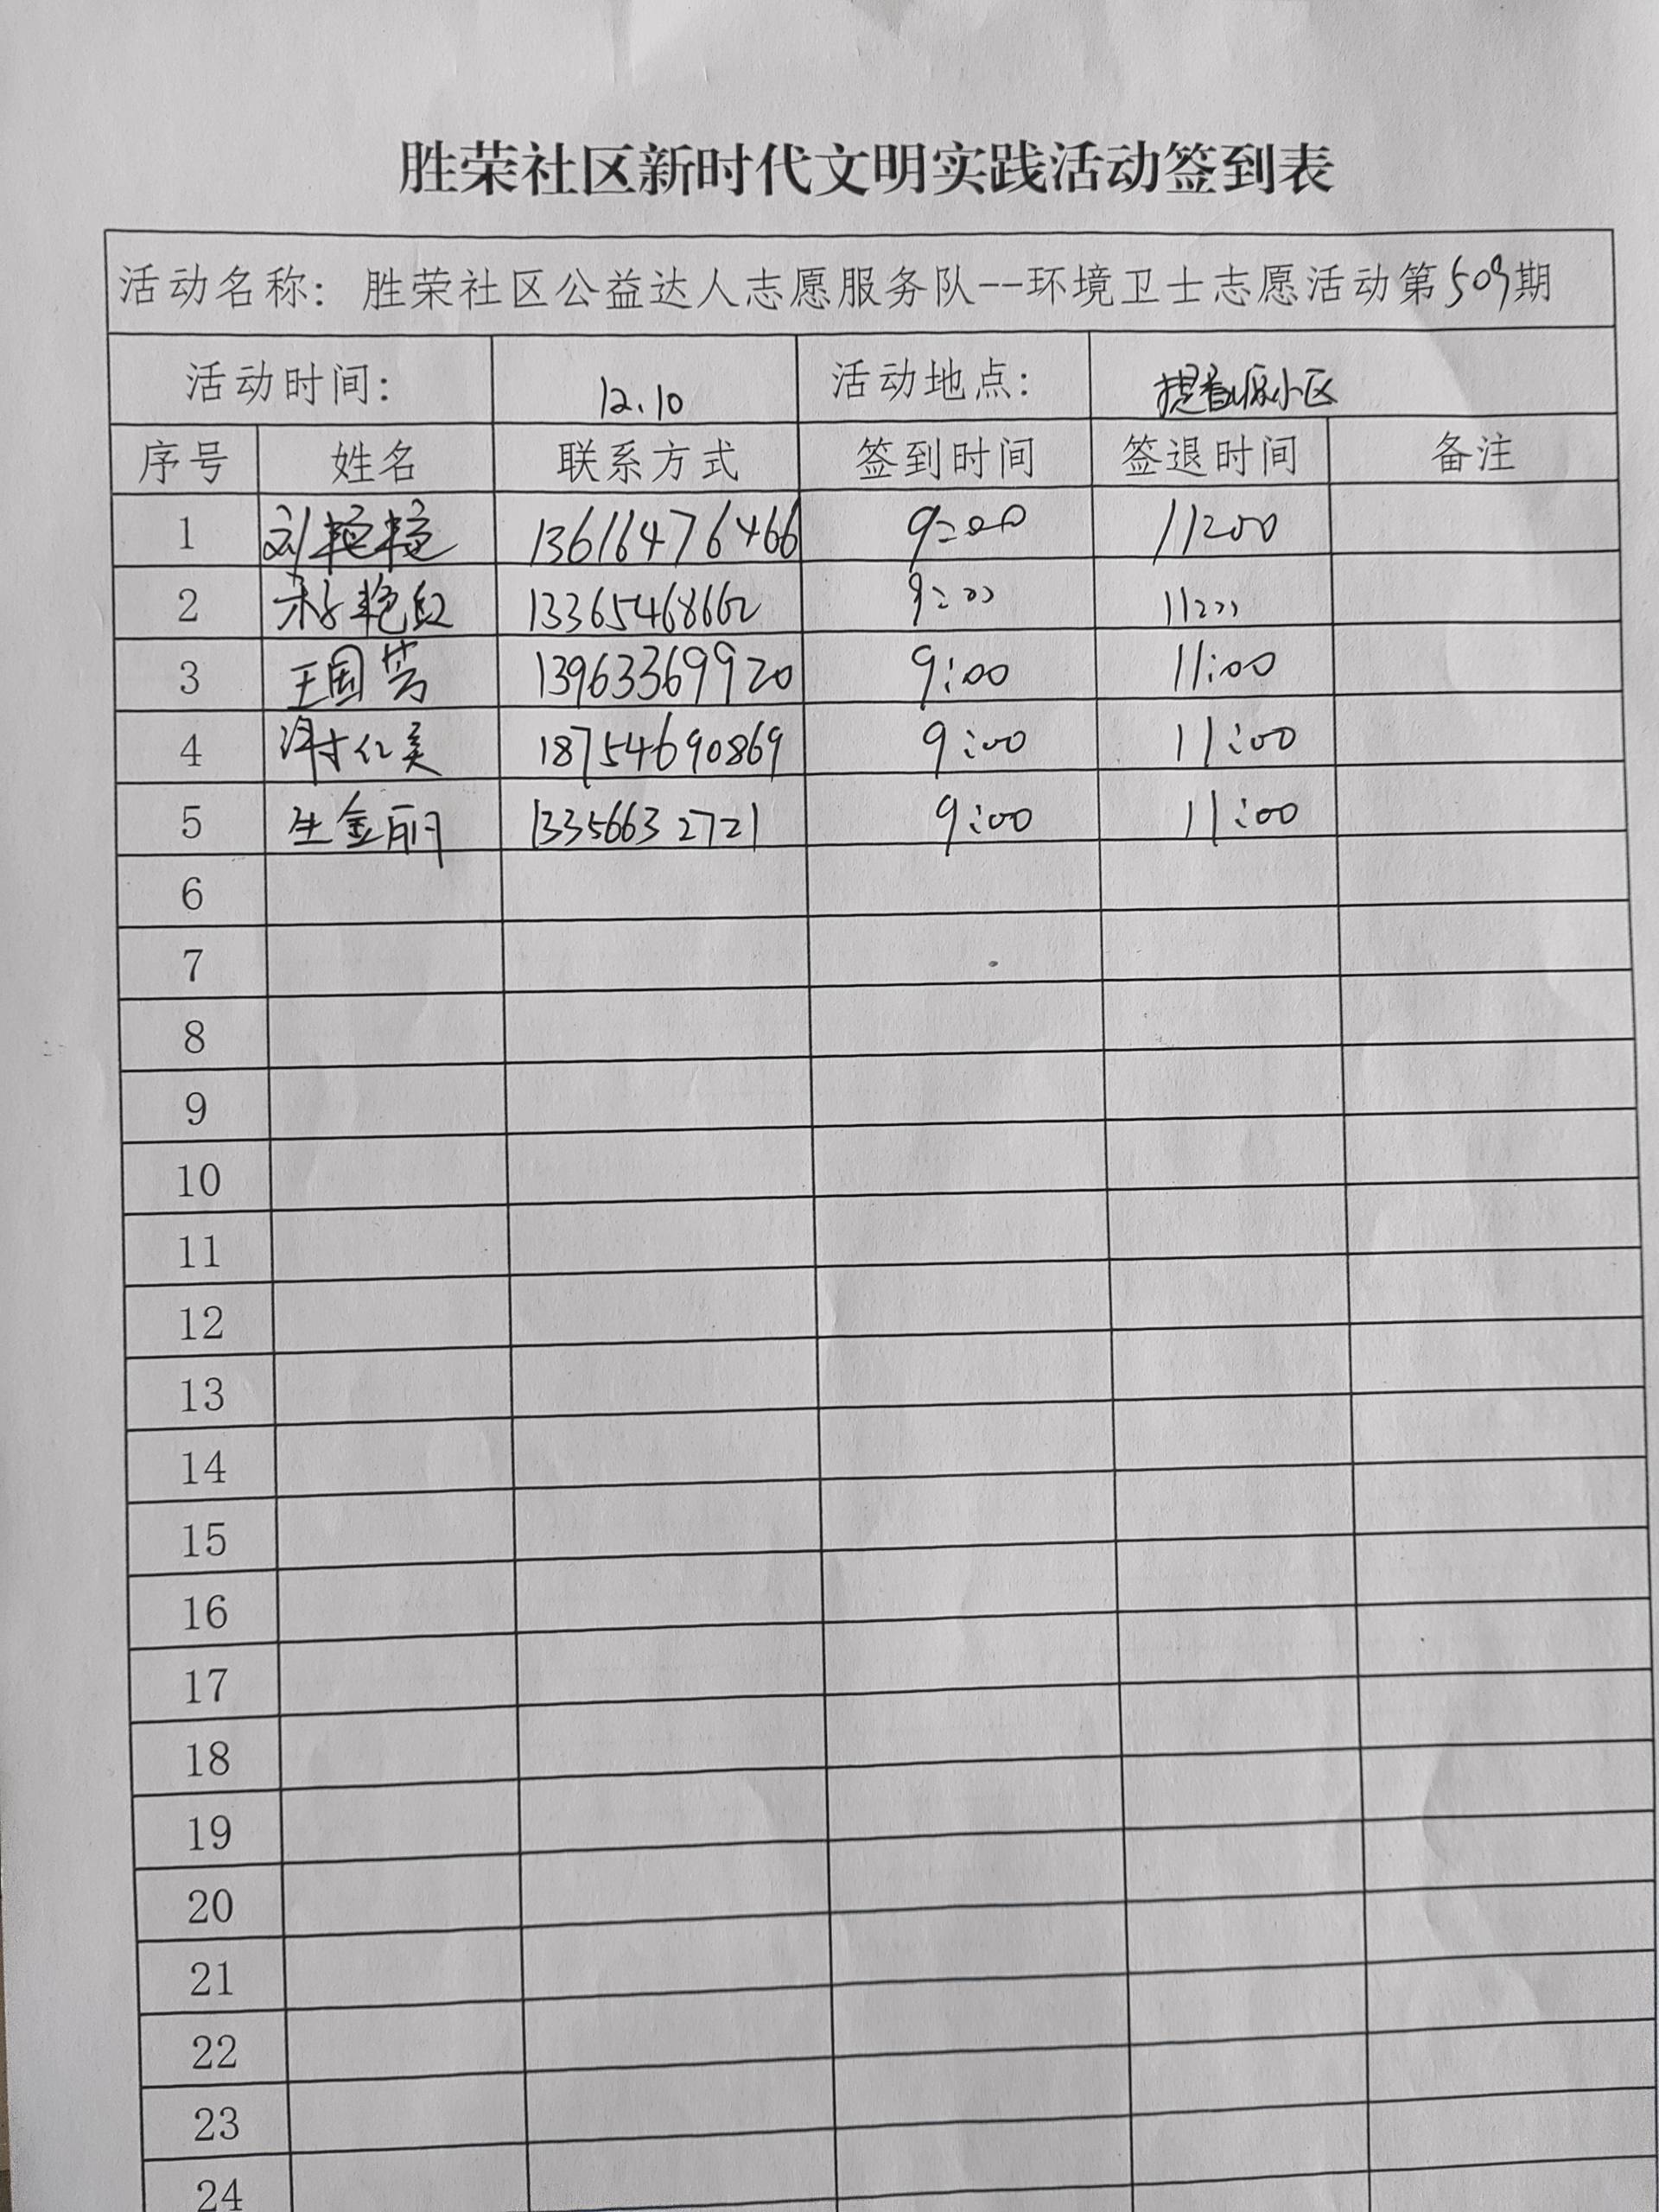 胜荣社区新时代文明实践活动签到表
活动名称：胜荣社区公益达人志愿服务队--环境卫士志愿活动第509期
活动时间： 12.10 活动地点： 小区
序号 姓名 联系方式 签到时间 签退时间 备注
1 刘艳艳 13616476466 9:00 11:00
2 艳红 13365468662 9:00 11:00
3 王国芳 13963369920 9:00 11:00
4 美 18754690869 9:00 11:00
5 生金丽 13356632721 9:00 11:00
6
7
8
9
10
11
12
13
14
15
16
17
18
19
20
21
22
23
24